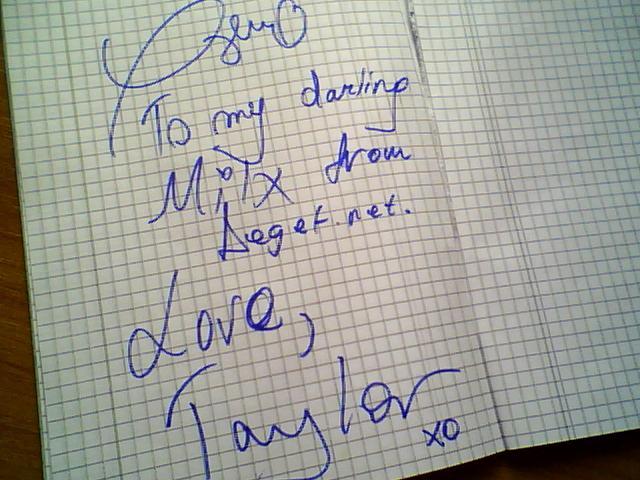 To my darling
MiTX from
Deget.net.
Love,
Taylor
xo